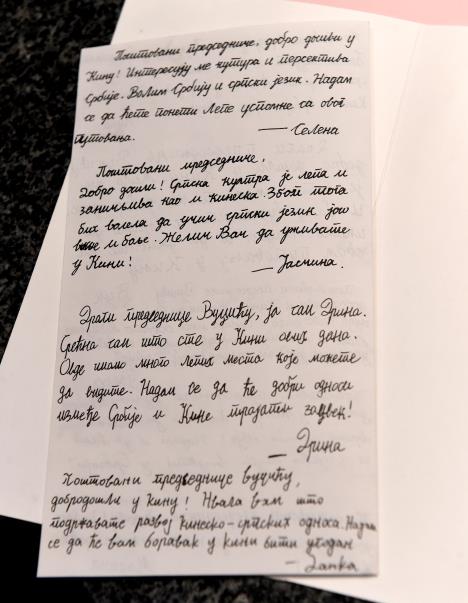 Поштовани председниче, добро дошви у
Кину! Интересују ме култура и персектива
Србије. Волим Србију и српски језик. Надам
се да ћете понети лепе успомне са овог
путовања.
— Селена
Поштовани председниче,
Добро дошли! Српска култра је лепа и
занимљива као и кинеска. Због тога
бих волела да учим српски језик још
више и боље. Желим Вам да уживате
у Кини!
— Јасмина.
Драги председнице Вучићу, ја сам Эрина.
Срећна сам што сте у Кини ових дана.
Овде имамо много лепих места које можете
да видите. Надам се да ће добри односи
између Србије и Кине трајати заувек!
— Эрина
Поштовани председнице вучићу,
добродошли у кину! Хвала вам што
подржавате развој кинеско-српских односа. Надам
се да ће вам боравак у кини бити угодан
— Јанка